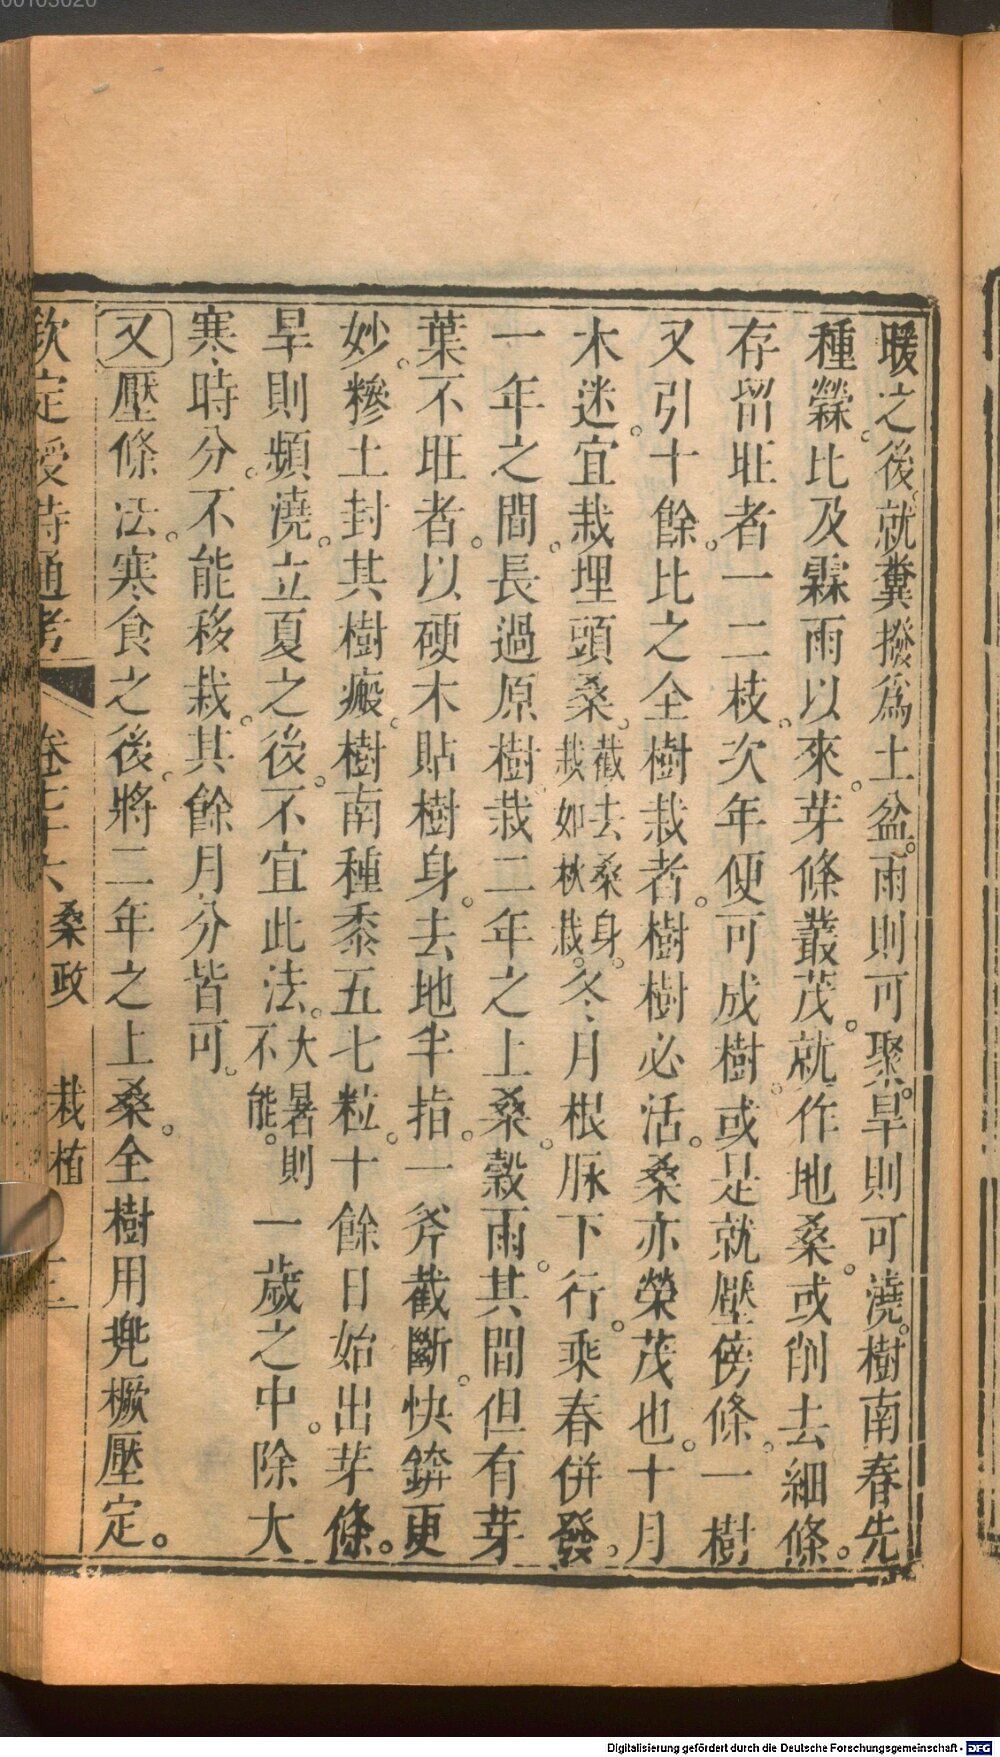 暖之後就糞撥爲土盆。雨則可聚。旱則可澆。樹南春先
種檾。比及霖雨以來。芽條叢茂。就作地桑。或削去細條。
存留旺者一二枝。次年便可成樹。或是就壓傍條。一樹
又引十餘。比之全樹栽者。樹樹必活。桑亦榮茂也。十月
木迷。宜栽埋頭桑。截去桑身。栽如秋栽。冬月根脉下行。乘春併發。
一年之間。長過原樹栽二年之上桑。穀雨。其間但有芽
葉不旺者。以硬木貼樹身。去地半指。一斧截斷。快錛更
妙。糝土封其樹瘢。樹南種黍五七粒。十餘日始出芽條。
旱則頻澆。立夏之後。不宜此法。大暑則不能。一歲之中。除大
寒時分。不能移栽。其餘月分皆可。
又壓條法。寒食之後。將二年之上桑。全樹用兠橛壓定。
欽定授時通考 卷七十六 桑政 栽植 三
00103020
Digitalisierung gefördert durch die Deutsche Forschungsgemeinschaft - DFG